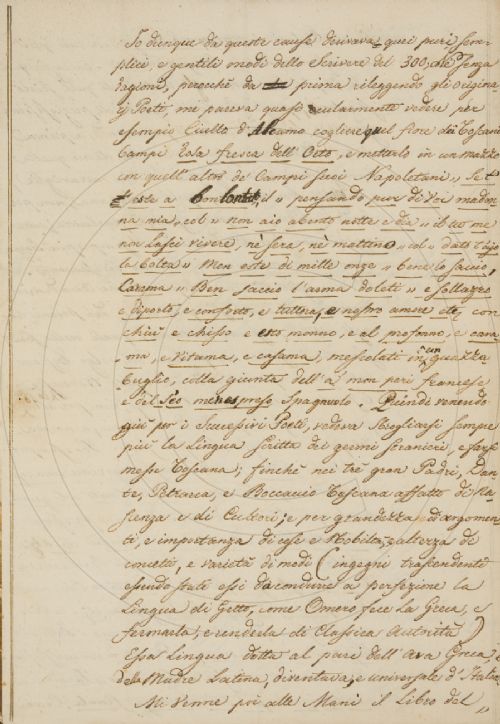 Io dunque da queste cause derivava quei puri, sem-
plici, e gentili modi dello Scrivere del 300, che senza
ragioni, perochè da prima rileggendo gli Origina-
rj Poeti, mi pareva quasi ocularmente vedere per
essempio Ciullo d'Alcamo cogliere quel fiore dai Toscani
Campi Rosa fresca dell'Orto, e metterlo in un mazzo
con quell'altro de' Campi suoi Napoletani, Se t'
este a bontate, il " pensando pur di voi madon-
na mia, col " non aio abento notte e dia " il tuo me
non lasci vivere, nè sera, nè mattino " col " dato
la bolta " Mon este di mille onze " bene lo saccio,
Carama " Ben saccio l'arma doleti " e sollazzo
e diporto, e conforto, e tuttora, e nostro amore etc. con
chiù e chisso e esto monno, e al profonno, e cara-
ma, e vitama, e casama, mescolati in un guazza-
buglio, colla giunta dell'a mon peri francese
e del Spagnuolo. Quindi venendo
giù per i Successivi Poeti, vedeva Spogliarsi sempre
più la Lingua Scritta dei germi Stranieri, e farsi
messe Toscana; finchè nei tre gran Padri, Dan-
te, Petrarca, e Boccaccio Toscana affatto di Na-
scenza e di Cultori; e per grandezza d'argomen-
ti, e importanza di cose e Nobiltà, altezza di
concetti, e varietà di modi (ingegni trascendenti
essendo stati essi da condurre a perfezione la
Lingua di Getto, come Omero fece la Greca, e
fermarla, e renderla di Classica Autorità)
Essa Lingua dotta al pari dell'Ava Greca,
della Madre Latina, diventava, e universale d'Italia.
Mi venne poi alle Mani il Libro del